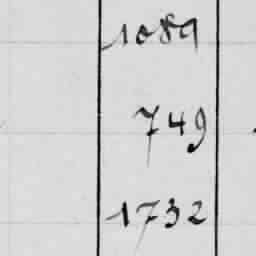 1089
749
1732